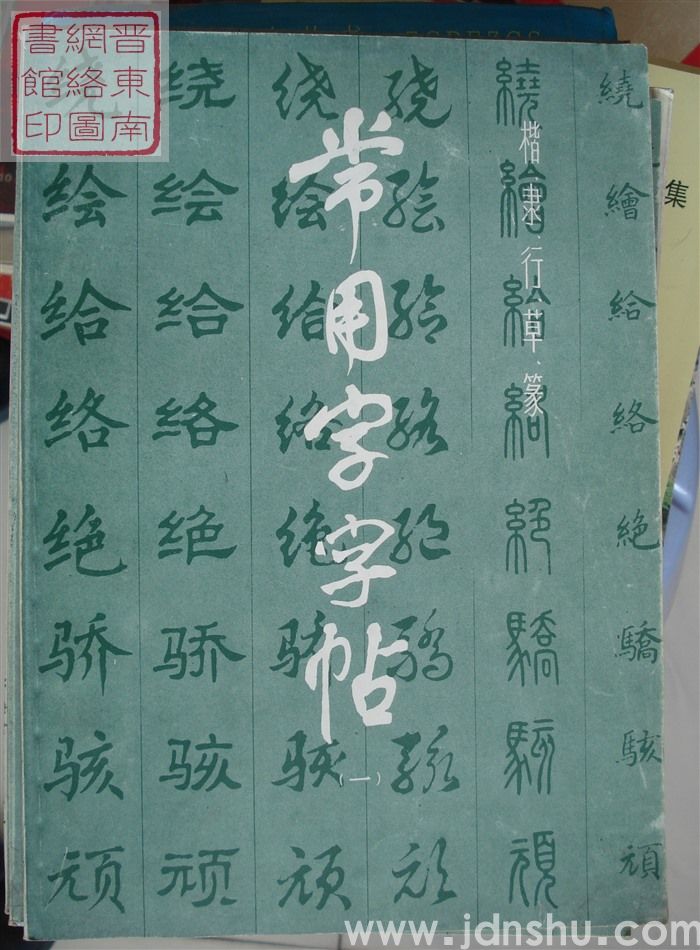 晋東南
網絡圖
書館印
常用字字帖
(一)
楷、隶、行、草、篆
绕 绕 绕 绕 繞 繞
绘 绘 绘 绘 繪 繪
给 给 给 给 給 給
络 络 络 络 絡 絡
绝 绝 绝 绝 絕 絕
骄 骄 骄 骄 驕 驕
骇 骇 骇 骇 駭 駭
顽 顽 顽 顽 頑 頑
集
www.jdnshu.com